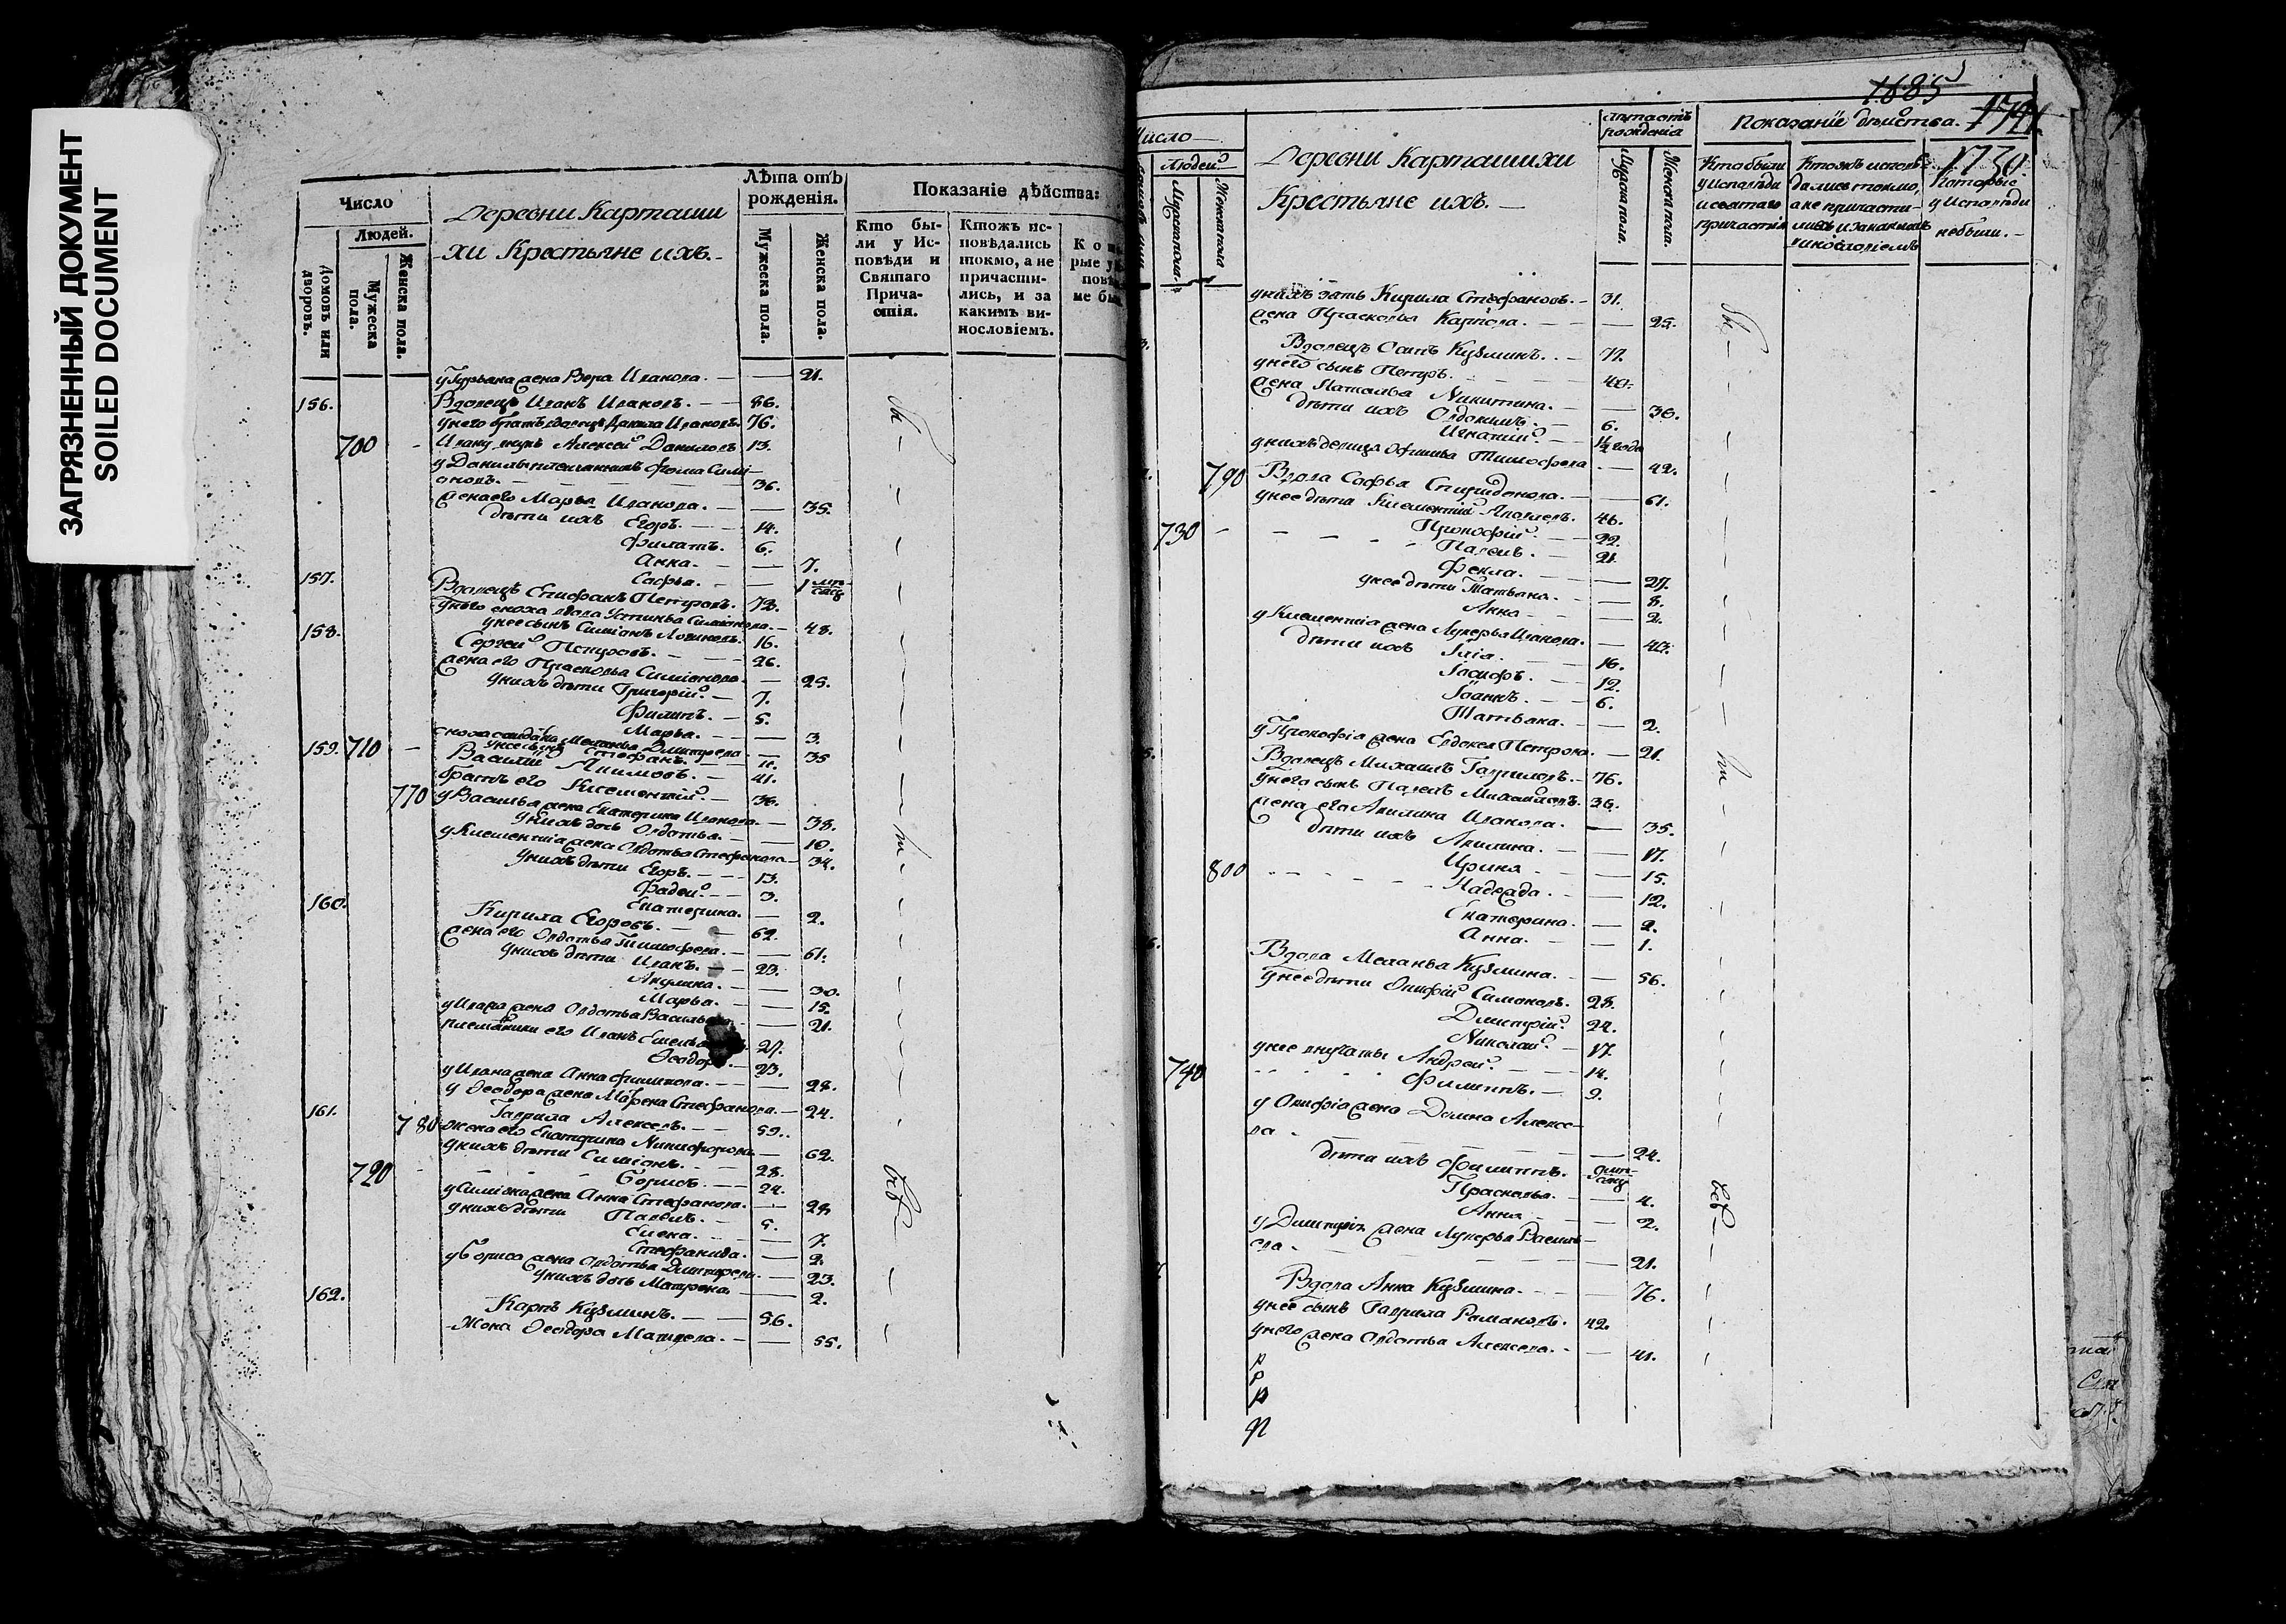 ЗАГРЯЗНЕННЫЙ ДОКУМЕНТ
SOILED DOCUMENT
Число
Людей.
Домовъ или дворовъ.
Мужеска пола.
Женска пола.
Деревни Карташи
хи Крестьяне ихъ.
Лѣта отъ рожденія.
Мужеска пола.
Женска пола.
Показаніе дѣйства:
Кто бы-
ли у Ис-
повѣди и
Святаго
Прича-
стія.
Ктожъ ис-
повѣдались
токмо, а не
причасти-
лись, и за
какимъ ви-
нословіемъ.
у Гурьяна жена Вера Иванова. 21.
156. Вдовецъ Иванъ Ивановъ. 86.
у него братъ вдовецъ Данила Ивановъ 76.
700 Ивану внукъ Алексей Даниловъ 13.
у Данилы племянникъ Фома Сими-
оновъ. 36.
жена его Марья Иванова. 35.
дѣти ихъ Егоръ. 14.
Филатъ. 6.
Анна. 7.
Софья. 1
157. Вдовецъ Епифанъ Петровъ. 73.
у него сноха вдова Устинья Симионова. 48.
у нее сынъ Симионъ Логиновъ. 16.
158. Сергей Петровъ. 26.
жена его Прасковья Симионова. 25.
у нихъ дѣти Григорий. 7.
Филипъ. 5.
Марья. 3.
сноха Меланья Дмитрева 35
у нее сынъ Стефанъ. 11.
159. 710 Василий Акимовъ. 41.
братъ его Климентий. 36.
770 у Василья жена Екатерина Иванова. 38.
у нихъ дочь Авдотья. 10.
у Климентия жена Авдотья Стефанова 34.
у нихъ дѣти Егоръ. 13.
Фадей. 3.
Екатерина. 2.
160. Кирила Егоровъ. 62.
жена его Авдотья Тимофева. 61.
у нихъ дѣти Иванъ. 23.
Акулина. 30.
Марья. 15.
у Ивана жена Авдотья 21.
племянники его Иванъ 27.
Ѳеодоръ. 23.
у Ивана жена Анна Филипова. 28.
у Ѳеодора жена Марена Стефанова. 24.
161. Гаврила Алексевъ. 59.
780 жена его Екатерина Никифорова 62.
у нихъ дѣти Симионъ. 28.
720 Борисъ. 24.
у Симиона жена Анна Стефанова. 28
у нихъ дѣти Павелъ. 5.
Елена. 7.
Стефанида. 2.
у Бориса жена Авдотья Дмитрева. 23.
у нихъ дочь Матрена 2.
162. Карпъ Кузминъ. 56.
Жена Ѳеодора Матвеева. 55.
1885
1741
1730
Число
Людей
Мужеска пола.
Женска пола
Деревни Карташихи
Крестьяне ихъ.
Лѣта отъ рожденія
Мужска пола.
Женска пола.
Показаніе дѣиства.
Кто были
у исповѣди
и святаго
причастия
Ктожъ исповѣ-
дались токмо,
а не причасти-
лись и за какимъ
винословіемъ
Которые
у исповѣди
небыли.
у нихъ зять Кирила Стефановъ. 31.
жена Прасковья Карпова. 25.
Вдовецъ Осипъ Кузминъ. 71.
у него сынъ Петръ. 40.
жена Наталья Никитина. 36.
дѣти ихъ Овдокимъ. 6.
Игнатий. 1½ года
у нихъ девица Офимья Тимофева 42.
790 Вдова Софья Спиридонова. 61.
у нее дѣти Климентий Яковлевъ. 46.
730 Прокофий. 22.
Павелъ. 21.
Фекла. 27.
у нее дѣти Татьяна. 8.
Анна 2.
у Климентия жена Лукерья Иванова. 43.
дѣти ихъ Илия. 16.
Иосифъ. 12.
Иоаннъ. 6.
Татьяна. 2.
у Прокофия жена Евдокея Петрова. 21.
Вдовецъ Михаилъ Гавриловъ. 76.
у него сынъ Павелъ Михайловъ. 36.
жена его Акилина Иванова. 35.
дѣти ихъ Акилина. 17.
800 Ирина 15.
Надежда. 12.
Екатерина. 2.
Анна. 1.
Вдова Меланья Кузмина. 56.
у нее дѣти Онифрий Симоновъ. 28.
Дмитрий. 24.
Николай. 17
у нее внучаты Андрей. 14.
740 Филиппъ. 9.
у Онифрия жена Домна Алексе-
ва 24.
дѣти ихъ Филиппъ.
Прасковья. 4.
Анна 2.
у Дмитрия жена Лукерья Василь
ева. 21.
Вдова Анна Кузмина. 76.
у нее сынъ Гаврила Романовъ. 42.
у него жена Авдотья Алексева. 41.